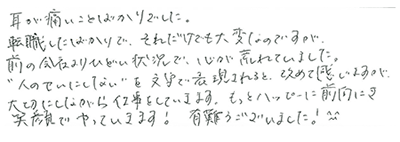 耳が痛いことばかりでした。
転職したばかりで、それだけでも大変なのですが、
前の会社よりひどい状況で、心が荒れていました。
"人のせいにしない"を文字で表現されると、改めて感じますが、
大切にしながら仕事をしていきます。もっとハッピーに前向きに
笑顔でやっていきます！ 有難うございました！^^